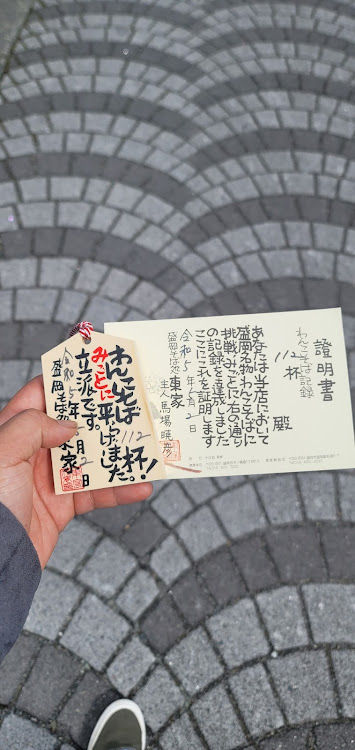 わんこそば112杯!
みごとに平げました。
立派です。
令和5年2月2日
盛岡そば処東家
證明書
わんこそば記録
112杯
殿
あなたは当店において
盛岡名物わんこそばに
挑戦みごとに右の通り
の記録を達成しました
ここにこれを証明します
令和5年2月2日
盛岡そば処東家
主人馬場暁彦